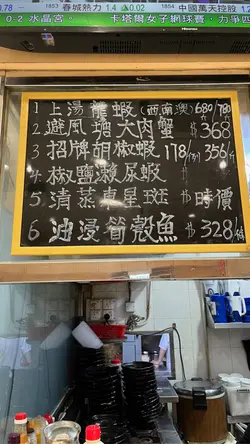 0.78 1853 春城熱力 1.4 ▲0.02 1854 中國萬天控股
0 2 水晶宮。 卡塔爾女子網球賽，力爭四
Hisense
1 上湯龍蝦 (西南澳) 680/780
2 避風塘大肉蟹 $368
3 招牌胡椒蝦 178/例 356/斤
4 椒鹽瀨尿蝦
5 清蒸東星斑 $ 時價
6 油浸筍殼魚 $328/條